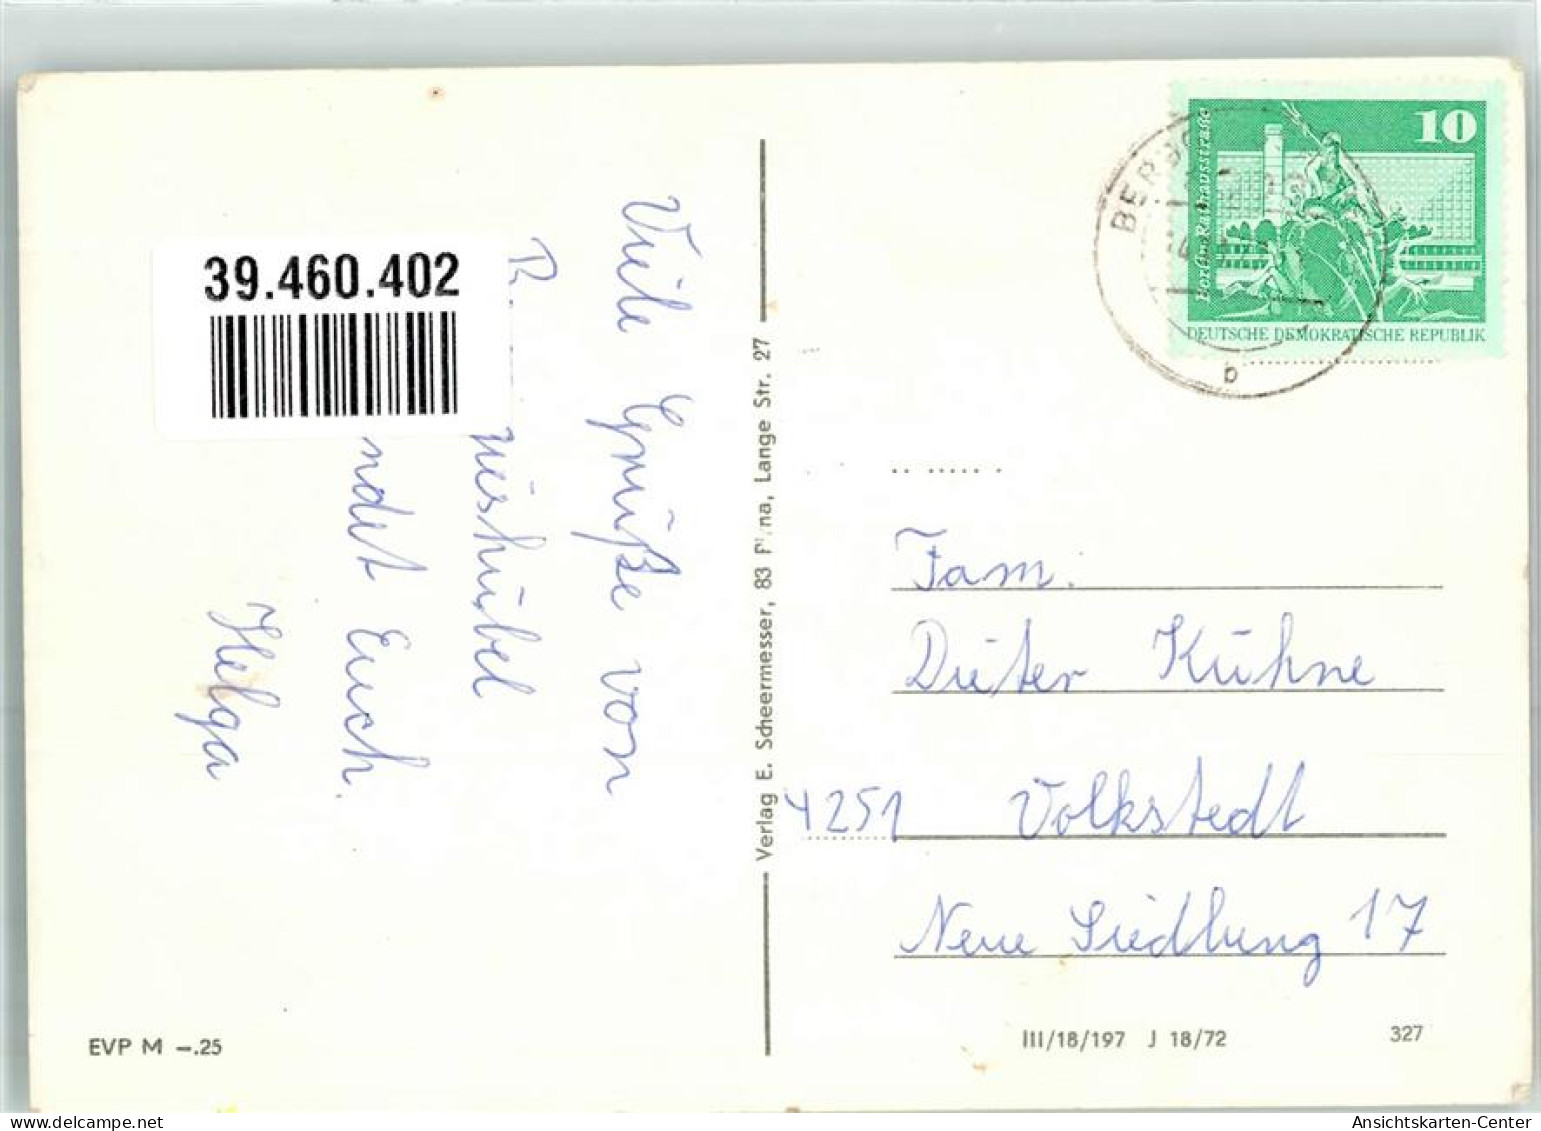 39.460.402
Viele Grüße von
R.
ndet Euch
Helga
EVP M –.25
Verlag E. Scheermesser, 83 Pirna, Lange Str. 27
10
Berlin Rathausstraße
DEUTSCHE DEMOKRATISCHE REPUBLIK
b
Fam.
Dieter Kühne
4251 Volkstedt
Neue Siedlung 17
III/18/197 J 18/72
327
Ansichtskarten-Center